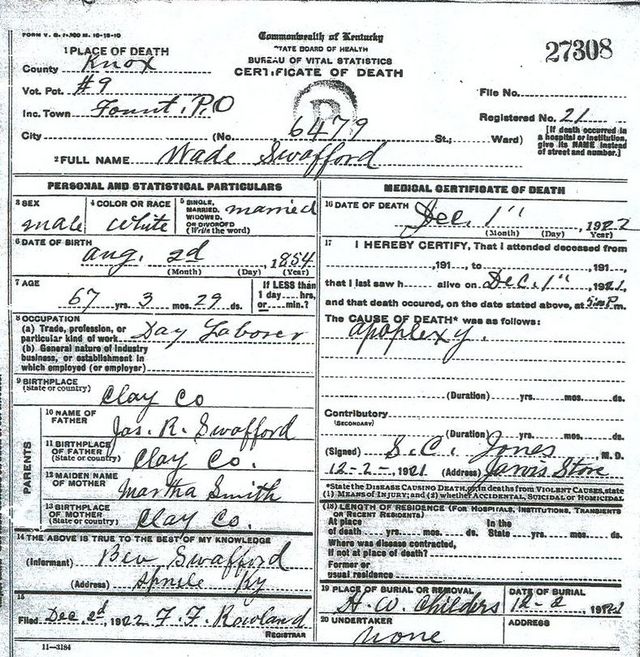 FORM V. S.
Commonwealth of Kentucky
STATE BOARD OF HEALTH
BUREAU OF VITAL STATISTICS
CERTIFICATE OF DEATH
27308
1 PLACE OF DEATH
County Knox
Vot. Pct. #9
Inc. Town Fount. P.O
City (No. 6479 St.; Ward)
File No.
Registered No. 21
[If death occurred in a hospital or institution, give its NAME instead of street and number.]
2 FULL NAME Wade Swafford
PERSONAL AND STATISTICAL PARTICULARS
3 SEX male
4 COLOR OR RACE White
5 SINGLE, MARRIED, WIDOWED, OR DIVORCED (Write the word) married
6 DATE OF BIRTH
Aug. 2d, 1854
(Month) (Day) (Year)
7 AGE
67 yrs. 3 mos. 29 ds.
If LESS than 1 day....hrs, or.....min.?
8 OCCUPATION
(a) Trade, profession, or particular kind of work Day Laborer
(b) General nature of industry business, or establishment in which employed (or employer)
9 BIRTHPLACE
(State or country) Clay Co
PARENTS
10 NAME OF FATHER Jas. R. Swafford
11 BIRTHPLACE OF FATHER (State or country) Clay Co.
12 MAIDEN NAME OF MOTHER Martha Smith
13 BIRTHPLACE OF MOTHER (State or country) Clay Co.
14 THE ABOVE IS TRUE TO THE BEST OF MY KNOWLEDGE
(Informant) Bev Swafford
(Address) Ky
15
Filed Dec 2d, 1922 F. F. Rowland
REGISTRAR
11-3184
MEDICAL CERTIFICATE OF DEATH
16 DATE OF DEATH Dec. 1", 1922
(Month) (Day) (Year)
17 I HEREBY CERTIFY, That I attended deceased from
, 191..., to , 191...,
that I last saw h alive on Dec. 1", 1921,
and that death occured, on the date stated above, at m.
The CAUSE OF DEATH* was as follows:
Apoplexy.
(Duration) yrs. mos. ds.
Contributory
(SECONDARY)
(Duration) yrs. mos. ds.
(Signed) S. C. Jones M. D.
12-2-, 1921 (Address) Jarvis Store
*State the DISEASE CAUSING DEATH, or, in deaths from VIOLENT CAUSES, state (1) MEANS OF INJURY; and (2) whether ACCIDENTAL, SUICIDAL or HOMICIDAL
(18) LENGTH OF RESIDENCE (FOR HOSPITALS, INSTITUTIONS, TRANSIENTS OR RECENT RESIDENTS)
At place of death yrs. mos. ds. In the State yrs. mos. ds.
Where was disease contracted, if not at place of death?
Former or usual residence
19 PLACE OF BURIAL OR REMOVAL
H. W. Childers
DATE OF BURIAL
12-2
20 UNDERTAKER
None
ADDRESS